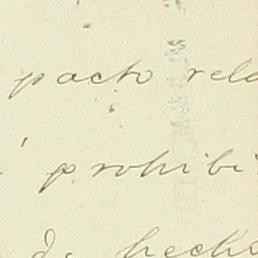 pacto rela
prohibi
de hecho